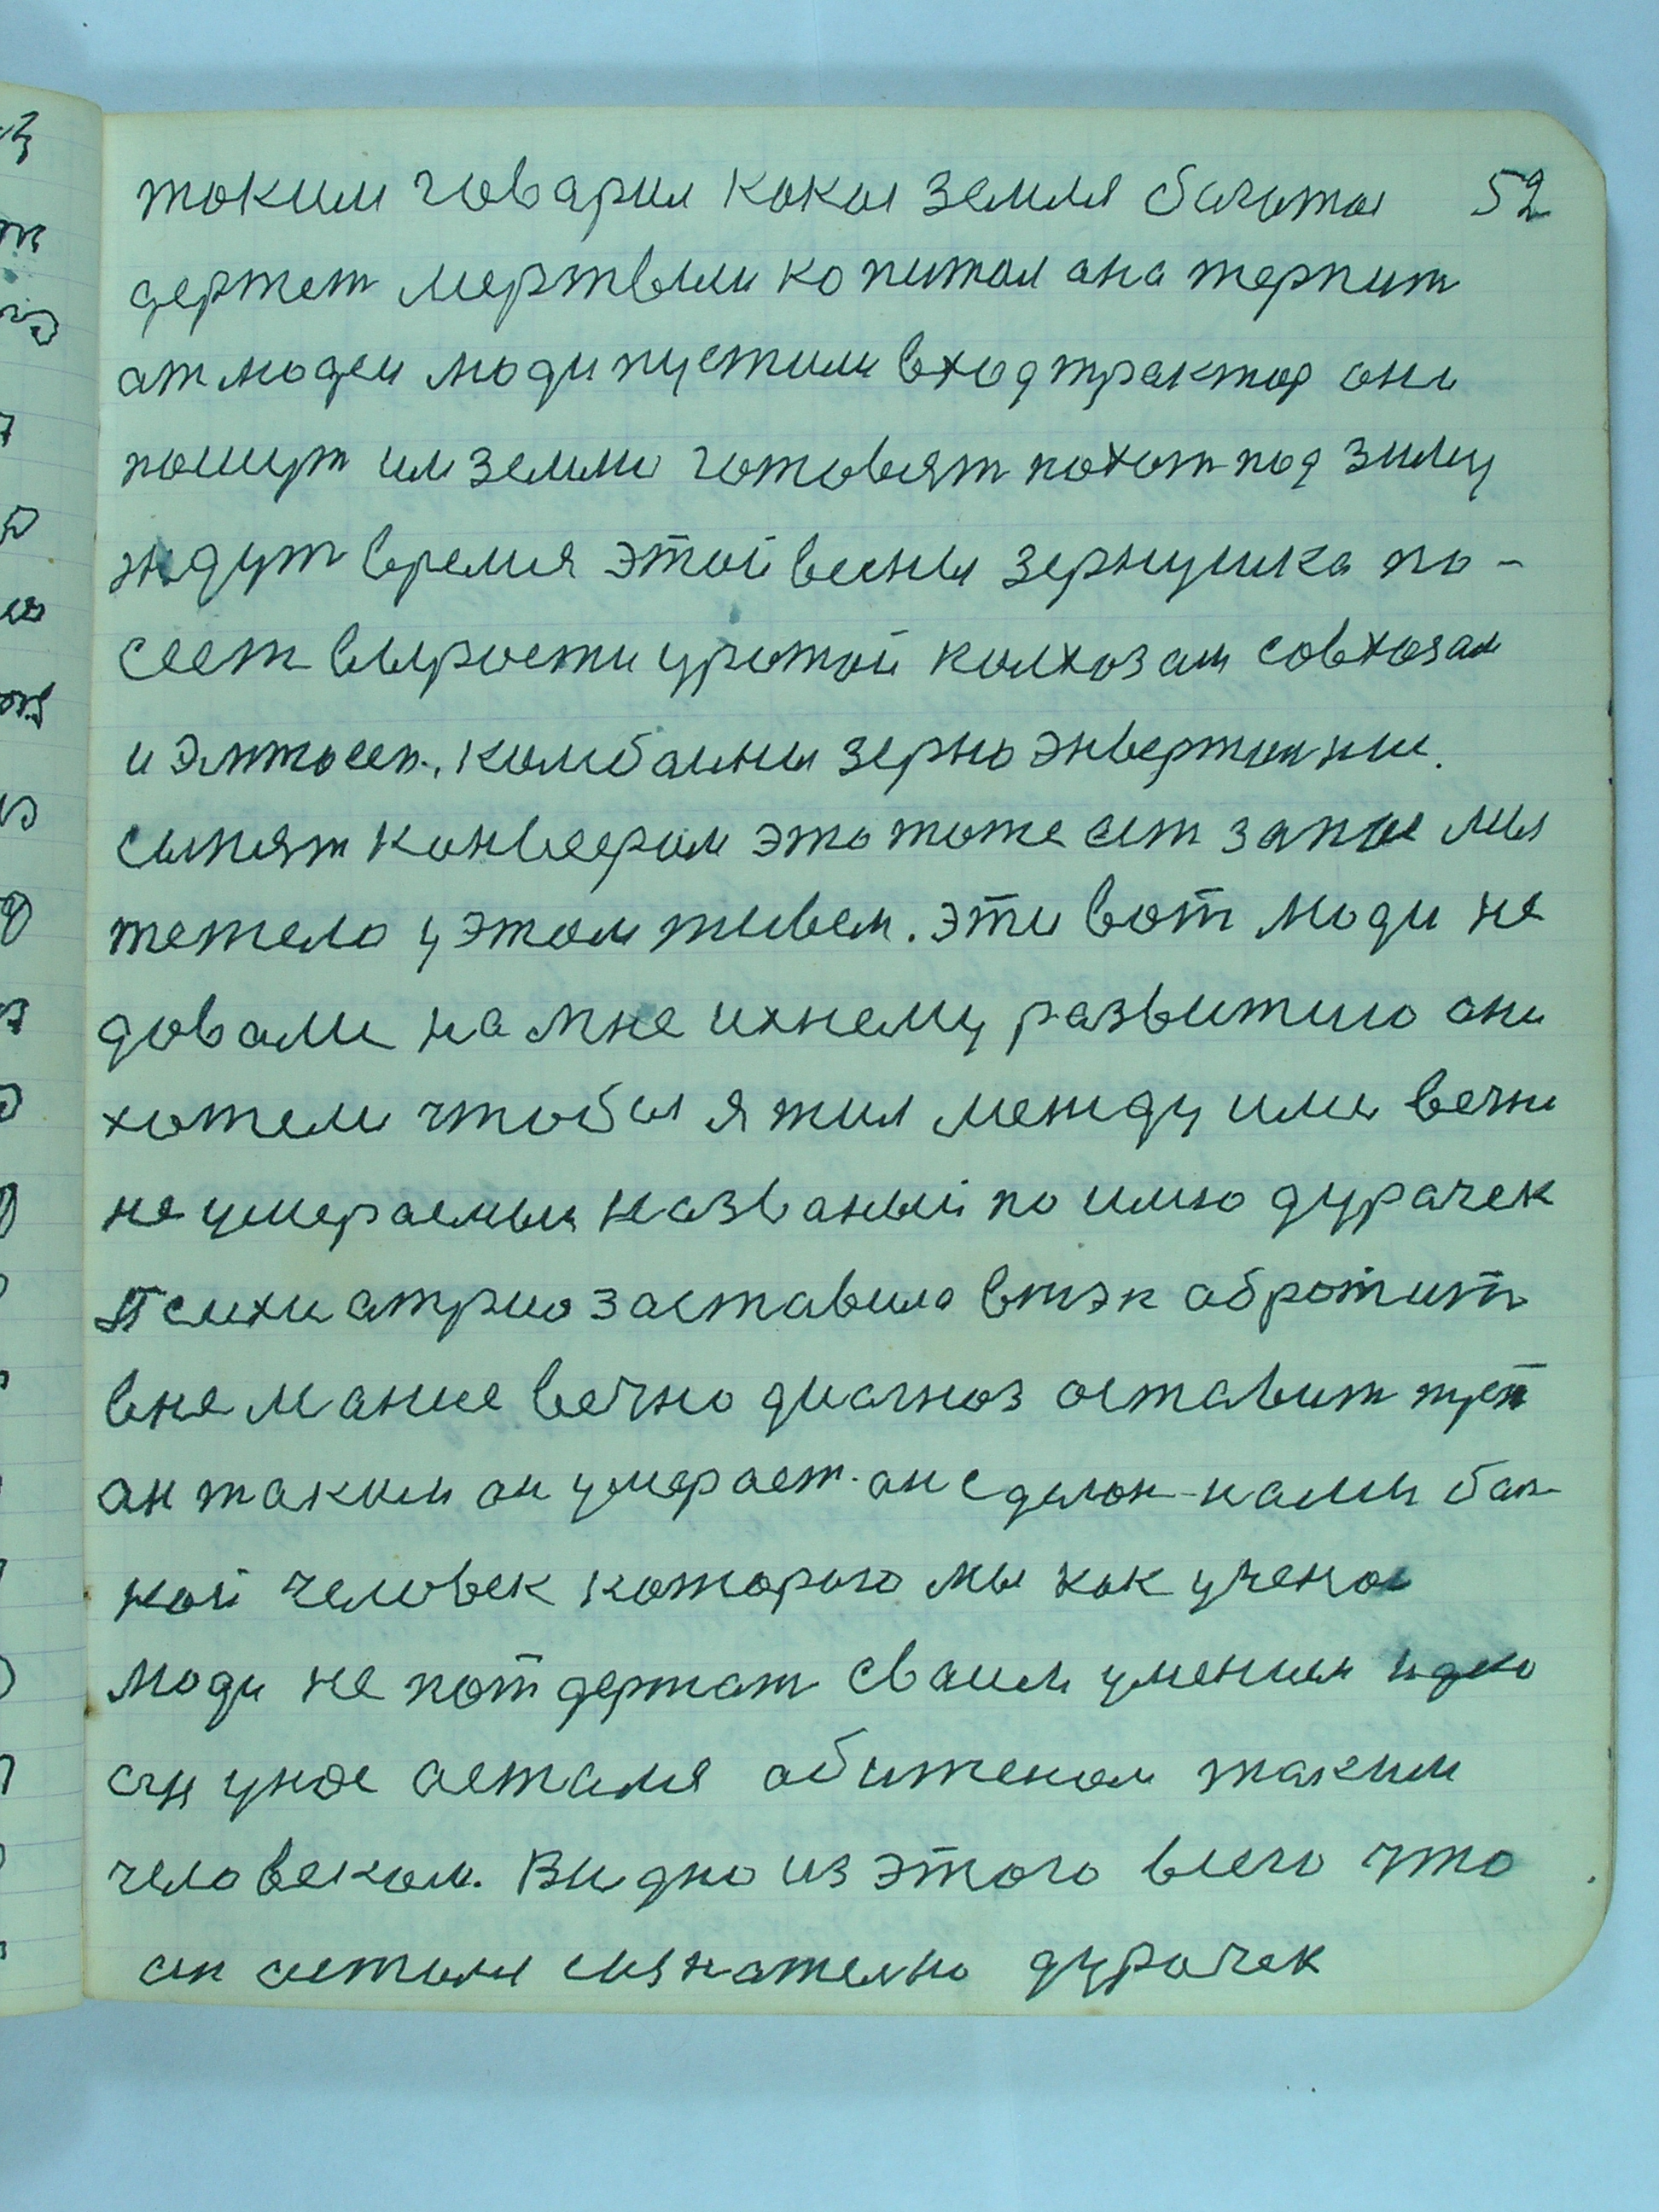 токим говарил кокоя земля богатоя 52
держет мертвым копитал ана терпит
ат людеи люди пустили вход трактор они
пошут им земли готовят похот под зиму
ждут время этой весны зернушка по-
сеет вырости урожай колхозам совхозам
и камбаины зерно
сыпят конвеерам это тоже ест запас мы
тежело у этом живем. эти вот люди не
довали на мне ихнему развитию они
хотели чтобы я жил между ими вечно
не умераемым названый по имю дурачек
Психиатрию заставила втэк абротит
внемание вечно диогноз оставит тут
ан таким он умерает. ан сделон нами бал-
ной человек которого мы как ученое
люди не потдержат сваим умением идею
ану уже асталя обиженом таким
человеком. Видно из этого всего что
ан астался сознателно дурочек